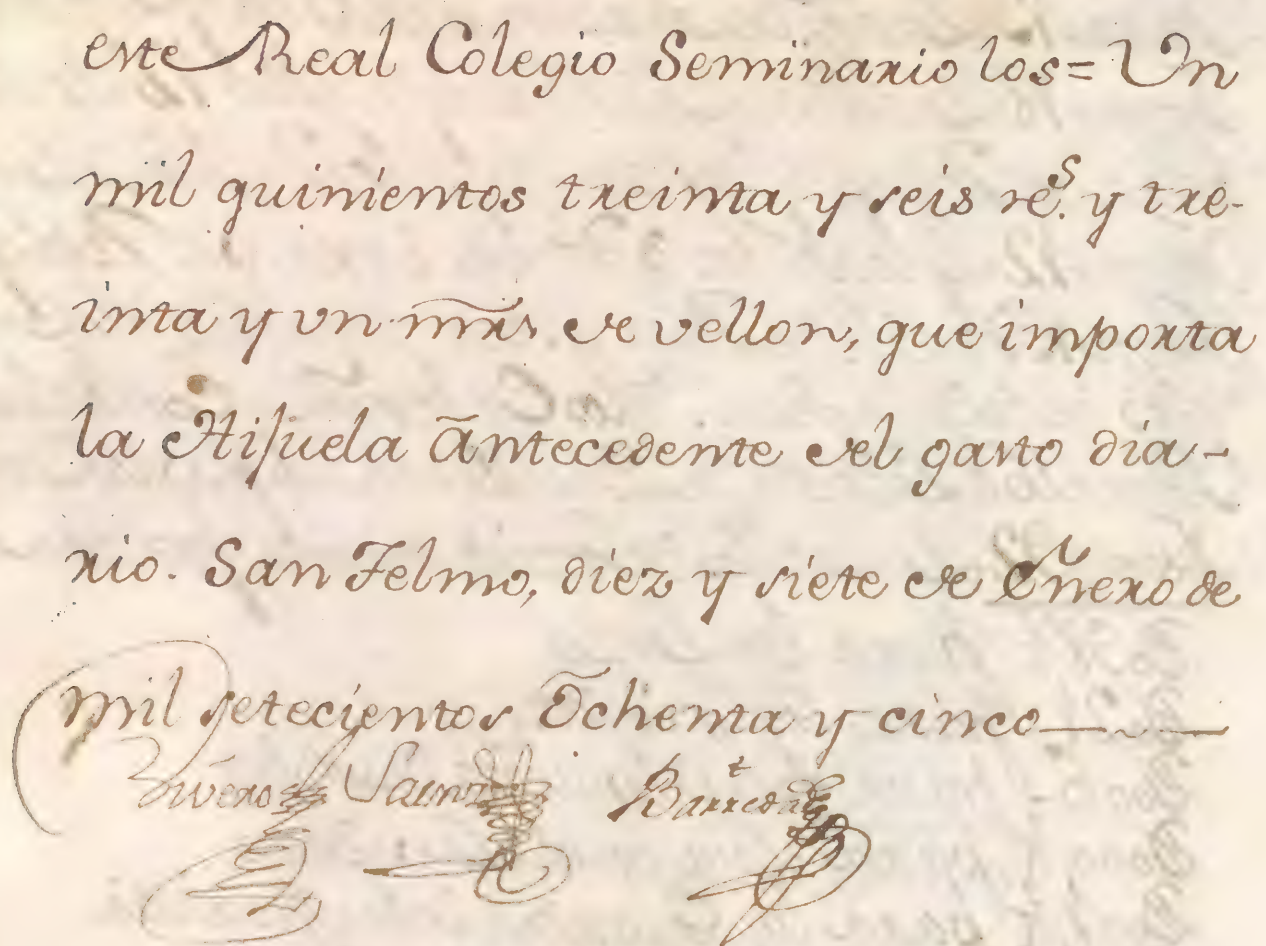 este Real Colegio Seminario los = Un
mil quinientos treinta y seis rẽ.ˢ y tre-
inta y un mr̃s. de vellon, que importa
la Hijuela antecedente del gasto dia-
rio. San Telmo, diez y siete de Enero de
mil setecientos Ochenta y cinco
Rivero Saenz Barreda